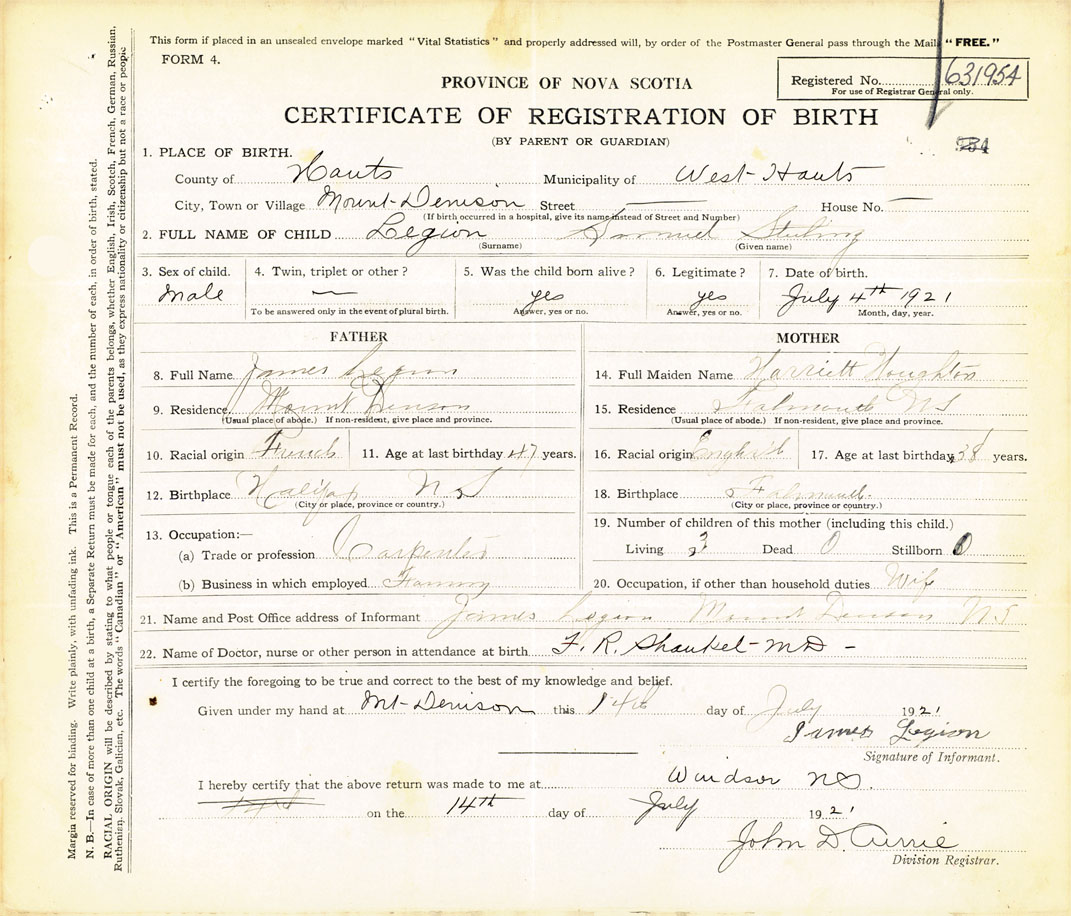 This form if placed in an unsealed envelope marked "Vital Statistics" and properly addressed will, by order of the Postmaster General pass through the Mail "FREE."
FORM 4.
PROVINCE OF NOVA SCOTIA
Registered No. 631954
For use of Registrar General only.
CERTIFICATE OF REGISTRATION OF BIRTH
(BY PARENT OR GUARDIAN)
1. PLACE OF BIRTH.
County of Hants Municipality of West-Hants
City, Town or Village Mount-Denison Street — House No. —
(If birth occurred in a hospital, give its name instead of Street and Number)
2. FULL NAME OF CHILD Legion Samuel Sterling
(Surname) (Given name)
3. Sex of child. 4. Twin, triplet or other? 5. Was the child born alive? 6. Legitimate? 7. Date of birth.
Male — yes yes July 4th 1921
To be answered only in the event of plural birth. Answer, yes or no. Answer, yes or no. Month, day, year.
FATHER
8. Full Name James Legion
9. Residence Mount Denson
(Usual place of abode.) If non-resident, give place and province.
10. Racial origin French 11. Age at last birthday 47 years.
12. Birthplace Halifax N S
(City or place, province or country.)
13. Occupation:—
(a) Trade or profession Carpenter
(b) Business in which employed Farming
MOTHER
14. Full Maiden Name Harriett Houghton
15. Residence Falmouth N S
(Usual place of abode.) If non-resident, give place and province.
16. Racial origin English 17. Age at last birthday 38 years.
18. Birthplace Falmouth
(City or place, province or country.)
19. Number of children of this mother (including this child.)
Living 3 Dead 0 Stillborn 0
20. Occupation, if other than household duties Wife
21. Name and Post Office address of Informant James Legion Mount Denson N S
22. Name of Doctor, nurse or other person in attendance at birth F. R. Shankel - MD -
I certify the foregoing to be true and correct to the best of my knowledge and belief.
Given under my hand at Mt-Denison this 14th day of July 1921
James Legion
Signature of Informant.
I hereby certify that the above return was made to me at Windsor NS.
on the 14th day of July 1921
John D Currie
Division Registrar.
Margin reserved for binding. Write plainly, with unfading ink. This is a Permanent Record.
N. B.—In case of more than one child at a birth, a Separate Return must be made for each, and the number of each, in order of birth, stated.
RACIAL ORIGIN will be described by stating to what people or tongue each of the parents belongs, whether English, Irish, Scotch, French, German, Russian,
Ruthenian, Slovak, Galician, etc. The words "Canadian" or "American" must not be used, as they express nationality or citizenship but not a race or people